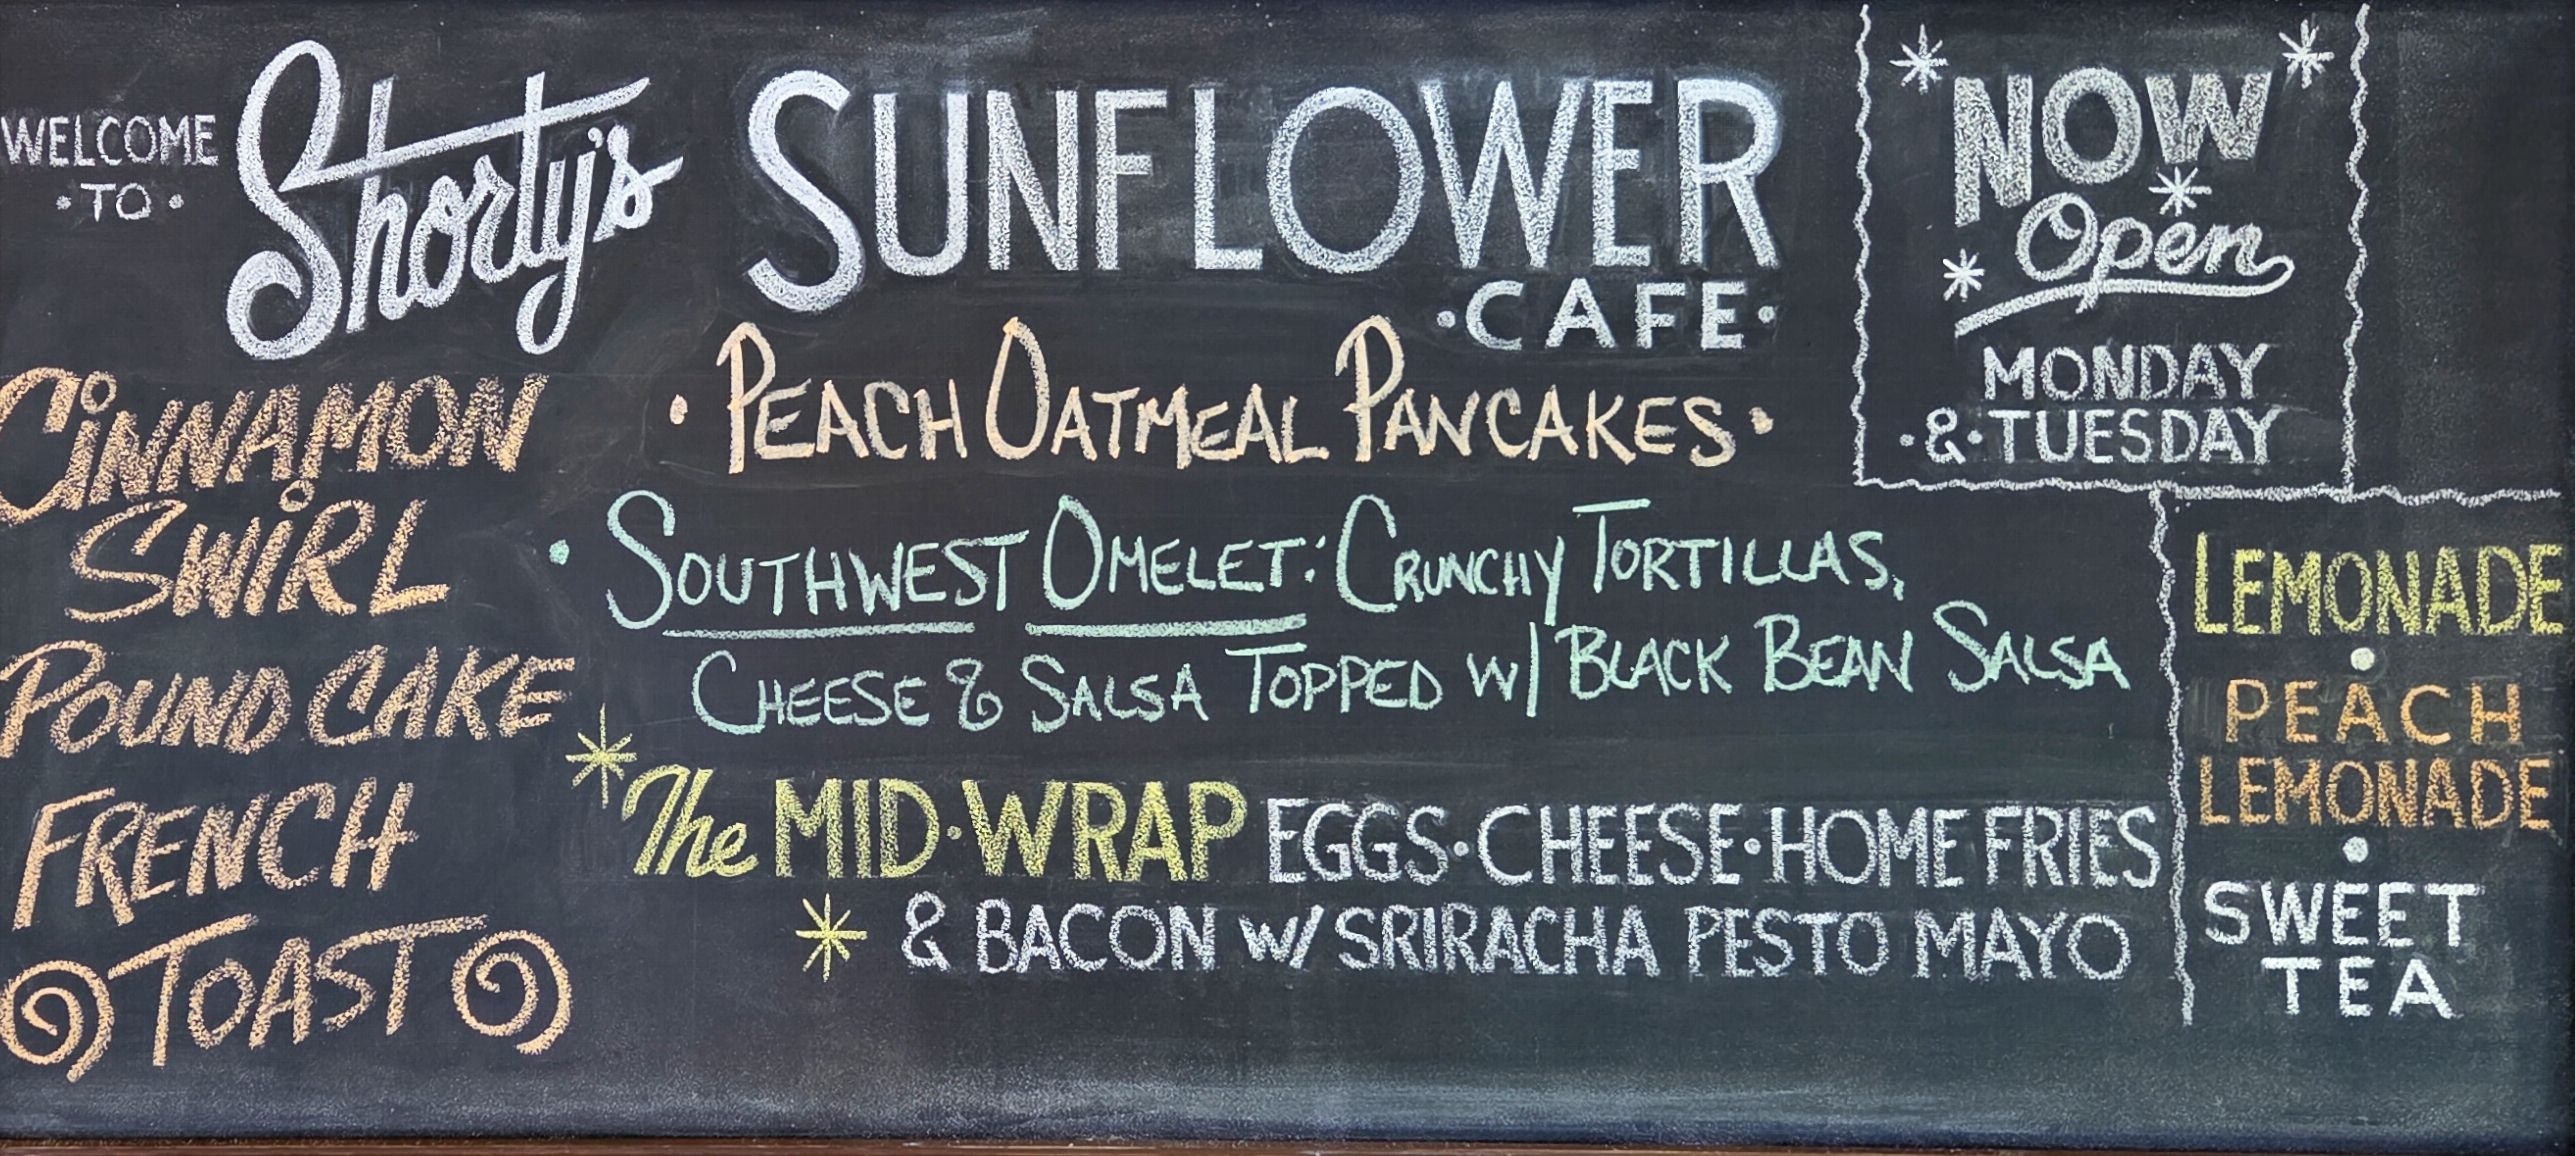 WELCOME
·TO·
Shorty's
SUNFLOWER
·CAFE·
NOW
Open
MONDAY
·&·TUESDAY
CINNAMON
SWIRL
POUND CAKE
FRENCH
TOAST
·PEACH OATMEAL PANCAKES·
·SOUTHWEST OMELET: CRUNCHY TORTILLAS,
CHEESE & SALSA TOPPED W/ BLACK BEAN SALSA
The MID·WRAP EGGS·CHEESE·HOME FRIES
& BACON W/ SRIRACHA PESTO MAYO
LEMONADE
·
PEACH
LEMONADE
·
SWEET
TEA